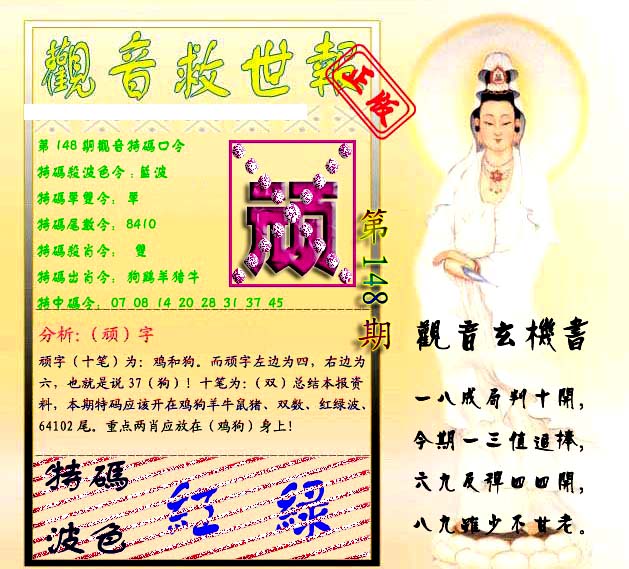 觀音救世報
正版
第148期觀音特碼口令
特碼殺波色令:藍波
特碼單雙令: 單
特碼尾數令: 8410
特碼殺肖令: 雙
特碼出肖令: 狗鷄羊猪牛
特中碼令: 07 08 14 20 28 31 37 45
頑
第148期
分析:（顽）字
顽字（十笔）为：鸡和狗。而顽字左边为四，右边为
六，也就是说 37（狗）！十笔为：（双）总结本报资
料，本期特码应该开在鸡狗羊牛鼠猪、双数、红绿波、
64102 尾。重点两肖应放在（鸡狗）身上！
特碼
波色
紅 綠
觀音玄機書
一八成局判十開,
今期一三值追捧,
六九反彈四四開,
八九雖少不甘老。